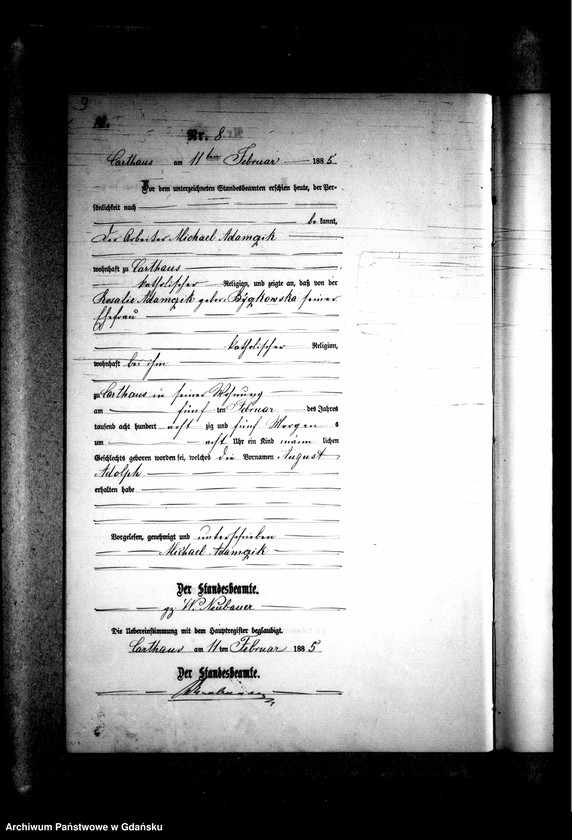 9
A.
Nr. 8
Carthaus am 11ten Februar 1885
Vor dem unterzeichneten Standesbeamten erschien heute, der Per-
sönlichkeit nach
be kannt,
der Arbeiter Michael Adamzik
wohnhaft zu Carthaus
katholischer Religion, und zeigte an, daß von der
Rosalie Adamzik geber. seiner
Ehefrau
katholischer Religion,
wohnhaft bei ihm
zu Carthaus in seiner Wohnung
am fünf ten Februar des Jahres
tausend acht hundert acht zig und fünf Morgen s
um acht Uhr ein Kind männ lichen
Geschlechts geboren worden sei, welches die Vornamen August
Adolph
erhalten habe
Vorgelesen, genehmigt und unterschrieben
Michael Adamzik
Der Standesbeamte.
gz. W. Neubauer
Die Uebereinstimmung mit dem Hauptregister beglaubigt.
Carthaus am 11 ten Februar 1885
Der Standesbeamte.
Neubauer
Archiwum Państwowe w Gdańsku